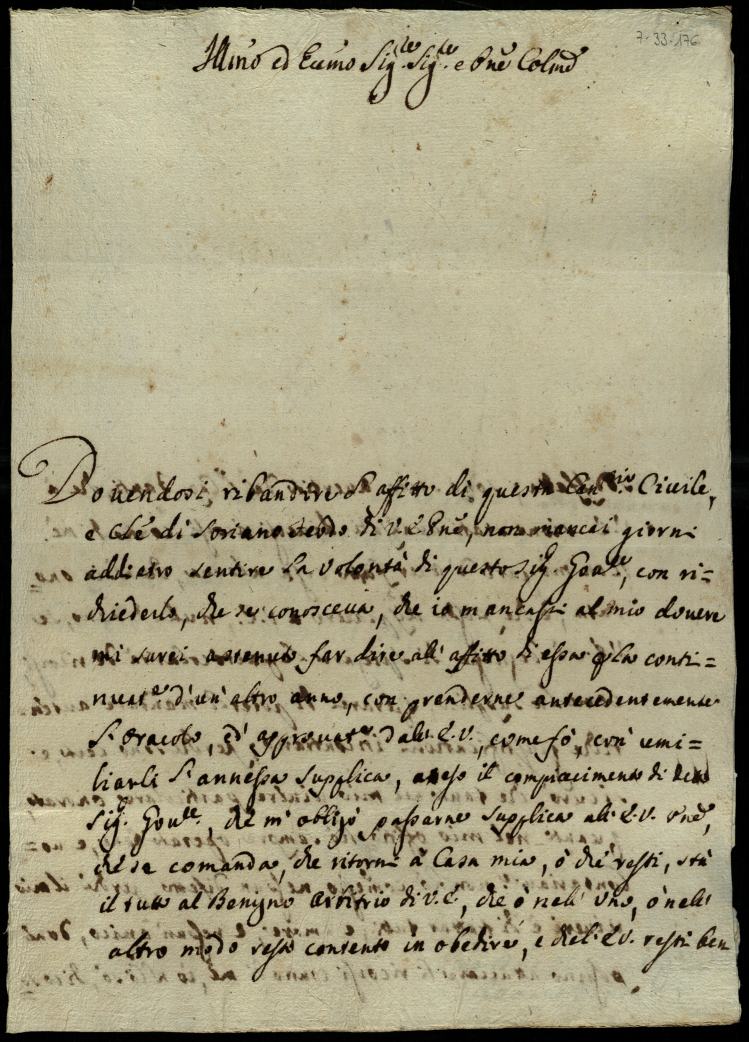 7-33-176
Illmo ed Eccmo Sig.re Sig.re e Pne Colmo
Dovendosi ribandire l'affitto di questa Can.ria Civile,
e Cle di Soriano feudo di V.E. Pne, non mancai giorni
addietro sentire la volontà di questo Sig.r Gov.re, con ri=
chiederlo, che se conosceva, che io mancassi al mio dovere
mi sarei astenuto far dire all'affitto di essa p la conti=
nuat.e d'un'altro anno, con prenderne antecedentemente
l'oracolo, ed approvat.e dall'E.V., come fò, con umi=
liarli l'annessa supplica, atteso il compiacimento di detto
Sig.r Gov.re, che m'obligò passarne supplica all'E.V. Pne,
che se comanda, che ritorni à Casa mia, ò che resti, stà
il tutto al Benigno Arbitrio di V.E., che ò nell'uno, ò nell'
altro modo resto contento in obedire, e che l'E.V. resti ben